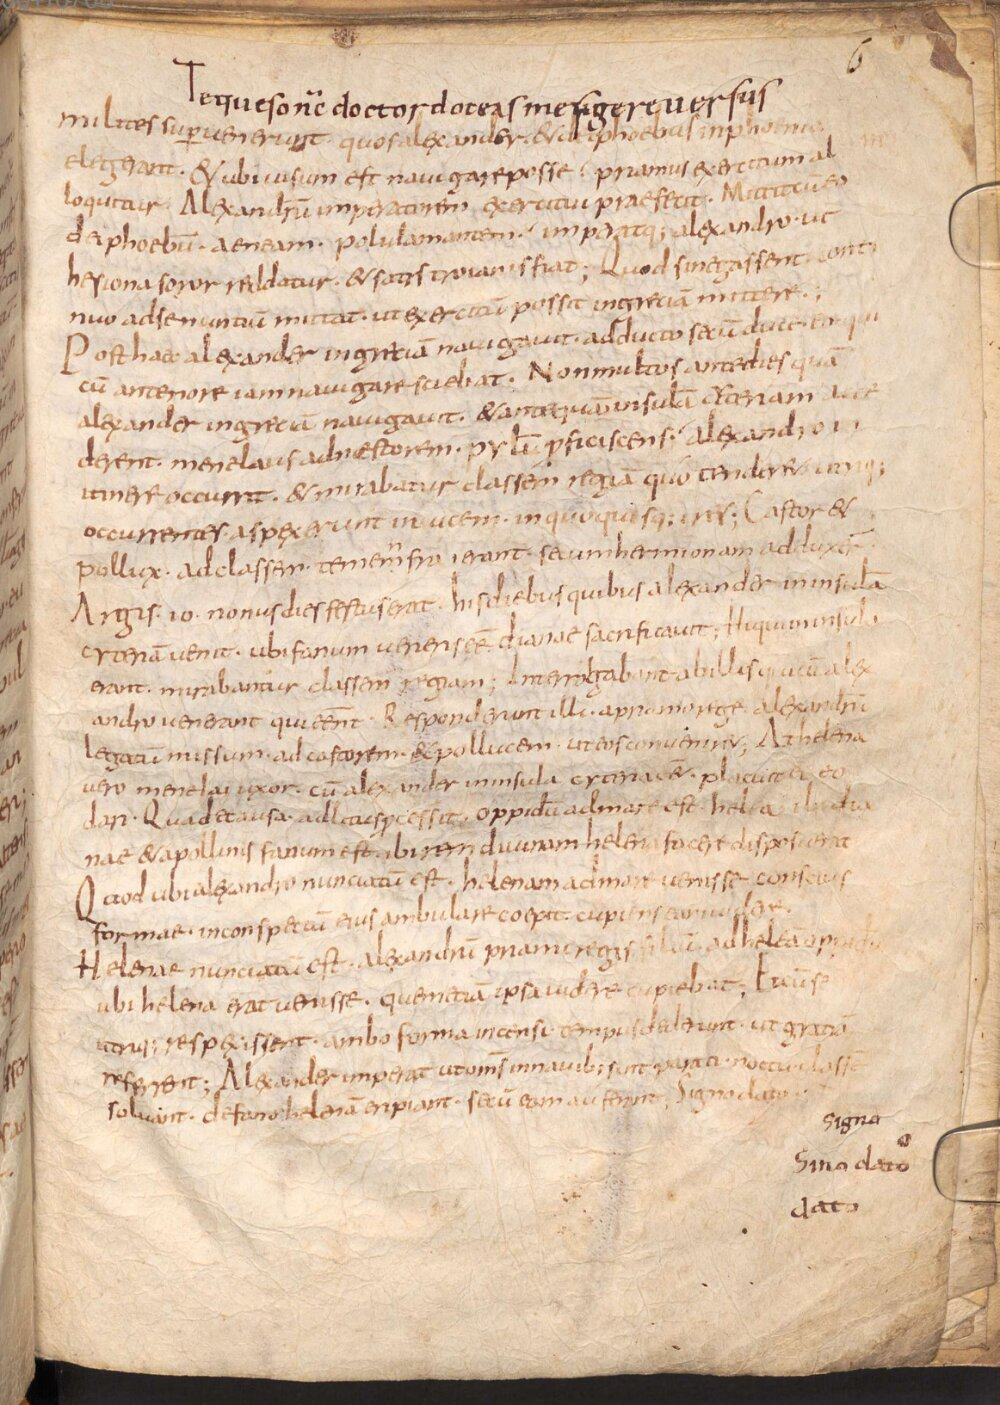 6
Te queso nc̄ doctor doceas me figere uersus
milites superuenerunt · quos alexander · & deiphoebus in phoenia
elegerant · & ubi uisum est nauigare posse · priamus exercitum al
loquitur · Alexandrū imperatorem exercitui praefecit · Mittit cū eo
deiphoebū · aeneam · polidamantem · imperatq; alexandro · ut
hesiona soror reddatur · & satis troianis fiat; Quod si negassent conti
nuo ad se nuntiū mittat · ut exercitū possit in greciā mittere ·;
Post haec alexander in greciā nauigauit · adducto secū duce · eo qui
cū antenore iam nauigare sciebat · Non multos ante dies quā
alexander in greciā nauigauit · & antequā insulā cyteriam acce
derent · menelaus ad nestorem · pylū proficiscens · alexandro in
itinere occurrit · & mirabatur classem regiā quo tenderet utriq;
occurrentes aspexerunt inuicem · inquo quisq; iret; Castor &
pollux · ad classem ierant · secum hermionam adduxer̄ ·
Argis · io · nonus dies festus erat · his diebus quibus alexander in insulā
cyteriā uenit · ubi fanum ueneris eē dianae sacrificauit; Hi qui in insula
erant · mirabantur classem regiam; Interrogabant ab illis qui cū alex
andro uenerant qui eēnt · Responderunt illi · a priamo rege alexandrū
legatū missum · ad castorem · & pollucem · ut eos conueniret; At helena
uero menelai uxor · cū alexander in insula cyterea eēt · placuit ei eo
dari · Qua de causa · ad litus processit · oppidū ad mare est · helea; ibi dia
nae & apollinis fanum est · ibi rem diuinam helena facere disposuerat
Quod ubi alexandro nunciatū est · helenam ad mare uenisse conscius
formae · in conspectū eius ambulare coepit · cupiens eam uidere ·
Helenae nunciatū est · alexandrū priami regis filiū · ad helea oppidū
ubi helena erat uenisse · quem etiā ipsa uidere cupiebat; Et cū se
utriq; respexissent · ambo forma incensi · tempus dederunt · ut gratiā
referrent; Alexander imperat ut omīs in nauib; sint parati · noctu classē
soluant · de fano helenā eripiant · secū eam auferent; Signo dato ·
Signa
Sino dato
dato